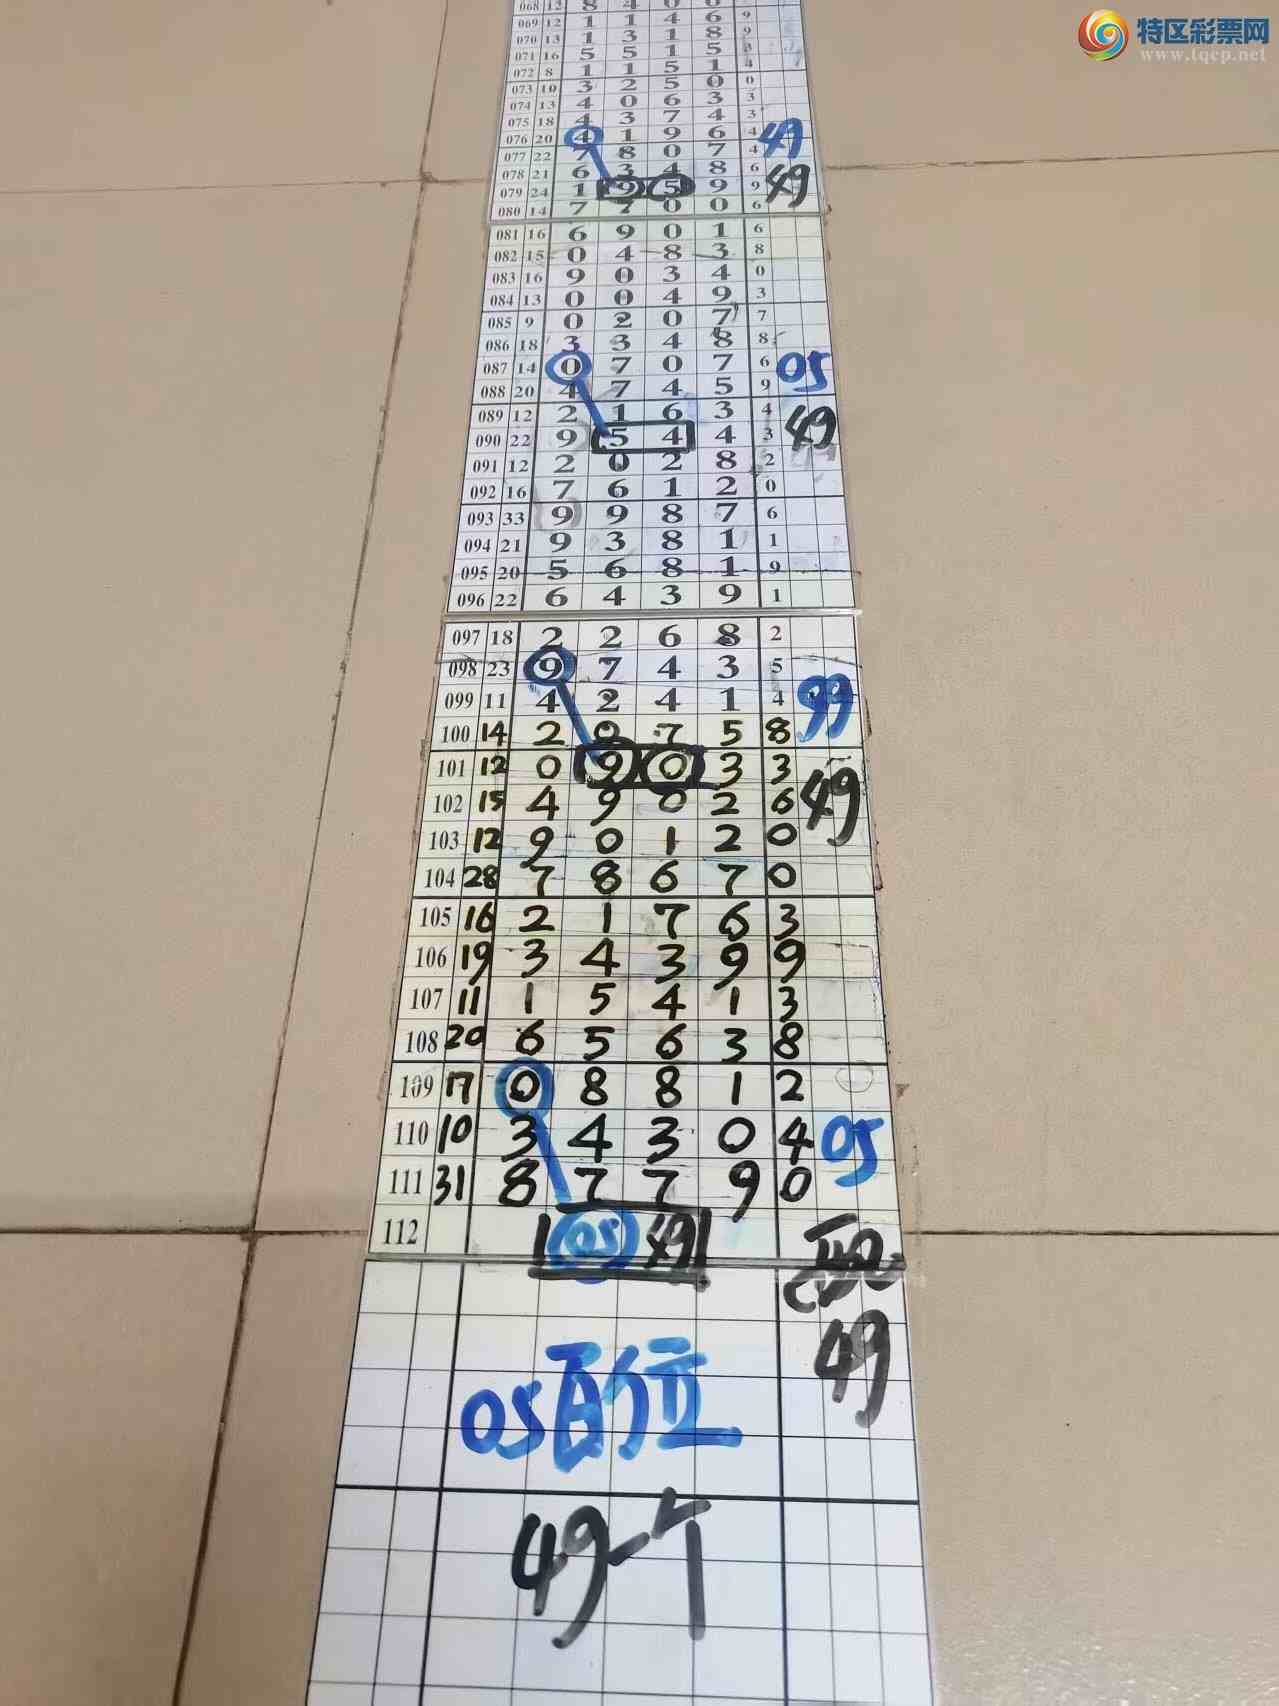 特区彩票网
www.tqcp.net
068 12 8 4 0 0
069 12 1 1 4 6 9
070 13 1 3 1 8 9
071 16 5 5 1 5 3
072 8 1 1 5 1 4
073 10 3 2 5 0 0
074 13 4 0 6 3 3
075 18 4 3 7 4 3
076 20 4 1 9 6 4 49
077 22 7 8 0 7 4
078 21 6 3 4 8 6
079 24 1 9 5 9 9 49
080 14 7 7 0 0 6
081 16 6 9 0 1 6
082 15 0 4 8 3 8
083 16 9 0 3 4 0
084 13 0 0 4 9 3
085 9 0 2 0 7 7
086 18 3 3 4 8 8
087 14 0 7 0 7 6 05
088 20 4 7 4 5 9
089 12 2 1 6 3 4
090 22 9 5 4 4 3 49
091 12 2 0 2 8 2
092 16 7 6 1 2 0
093 33 9 9 8 7 6
094 21 9 3 8 1 1
095 20 5 6 8 1 9
096 22 6 4 3 9 1
097 18 2 2 6 8 2
098 23 9 7 4 3 5
099 11 4 2 4 1 4 99
100 14 2 0 7 5 8
101 12 0 9 0 3 3
102 15 4 9 0 2 6 49
103 12 9 0 1 2 0
104 28 7 8 6 7 0
105 16 2 1 7 6 3
106 19 3 4 3 9 9
107 11 1 5 4 1 3
108 20 6 5 6 3 8
109 17 0 8 8 1 2
110 10 3 4 3 0 4 05
111 31 8 7 7 9 0
112 05 49
49
05百位
49一个